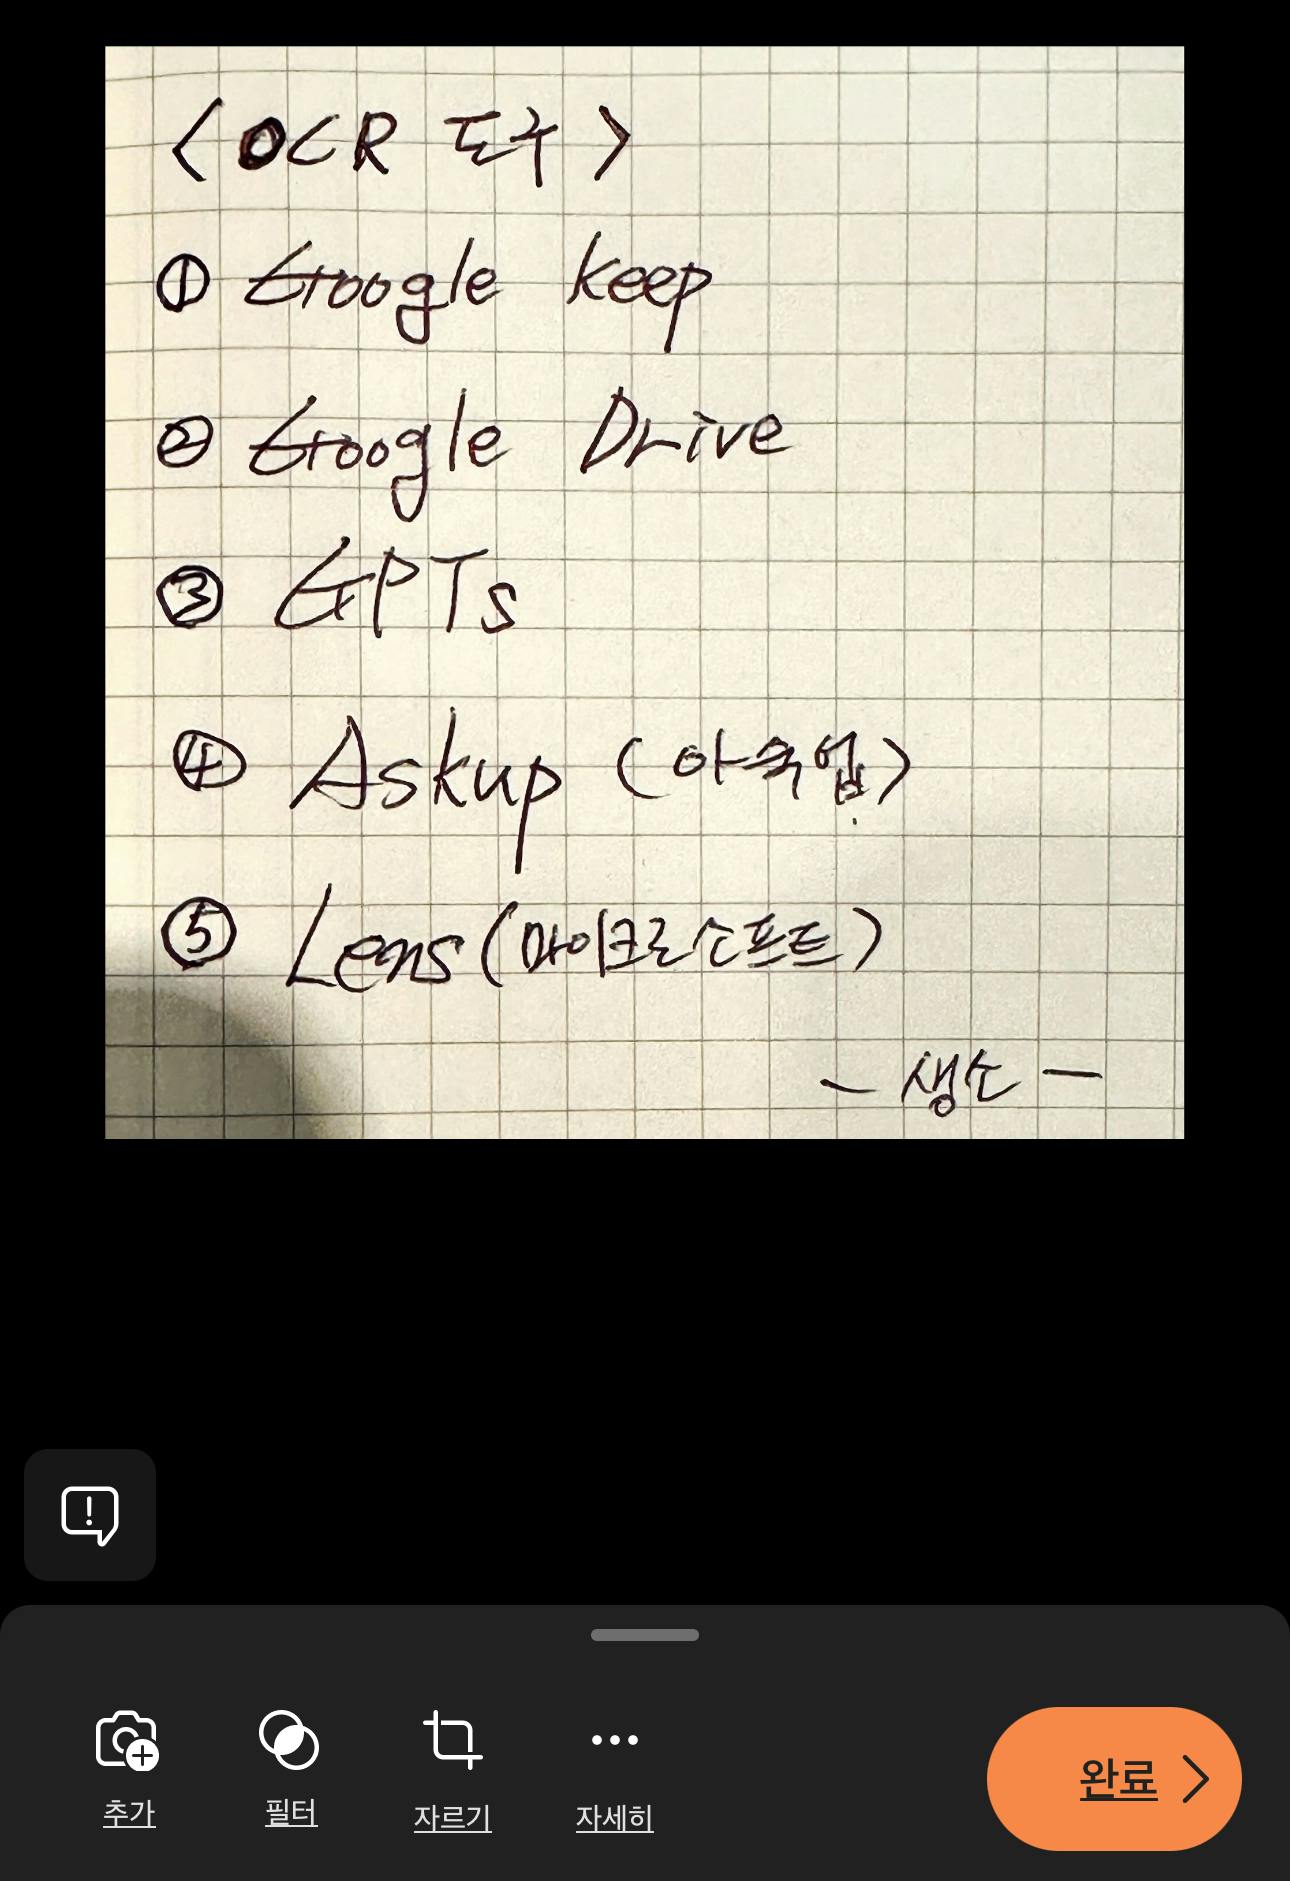 <OCR 도구>
① Google keep
② Google Drive
③ GPTs
④ Askup (아숙업)
⑤ Lens(마이크로소프트)
- 생소 -
추가
필터
자르기
자세히
완료